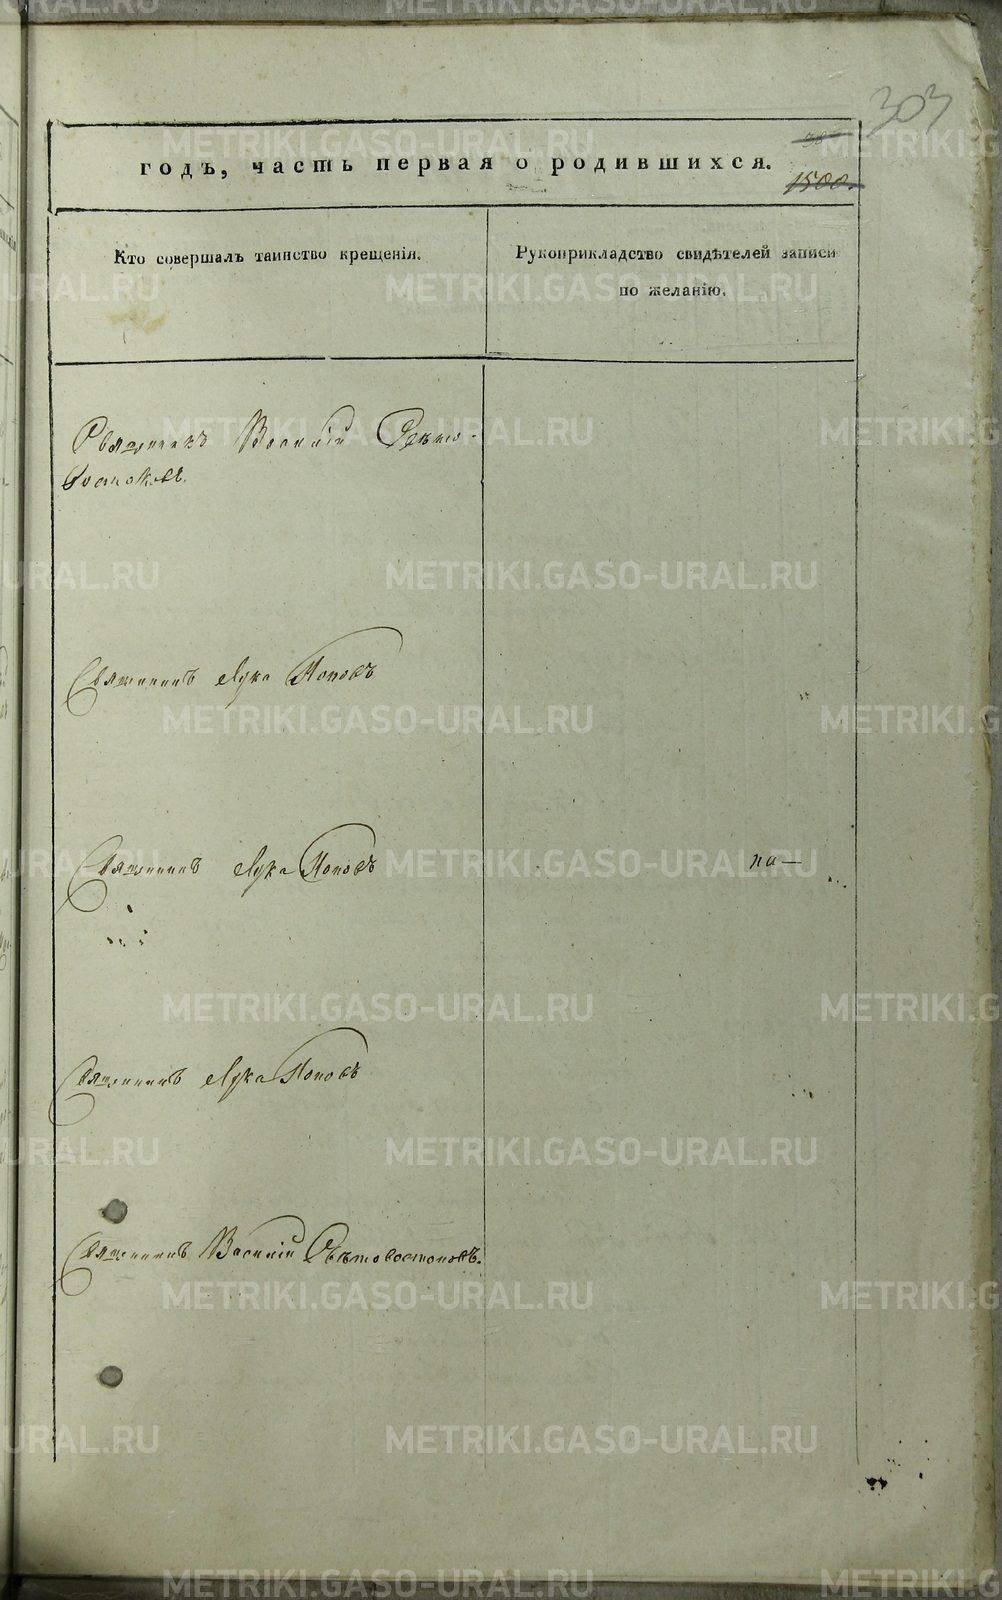 303
годъ, часть первая о родившихся.
1500.
Кто совершалъ таинство крещенія.
Рукоприкладство свидѣтелей записи
по желанію.
Священникъ Василій Свѣто-
востоковъ.
Священникъ Лука Поповъ
Священникъ Лука Поповъ
на—
Священникъ Лука Поповъ
Священникъ Василій Свѣтовостоковъ.
METRIKI.GASO-URAL.RU